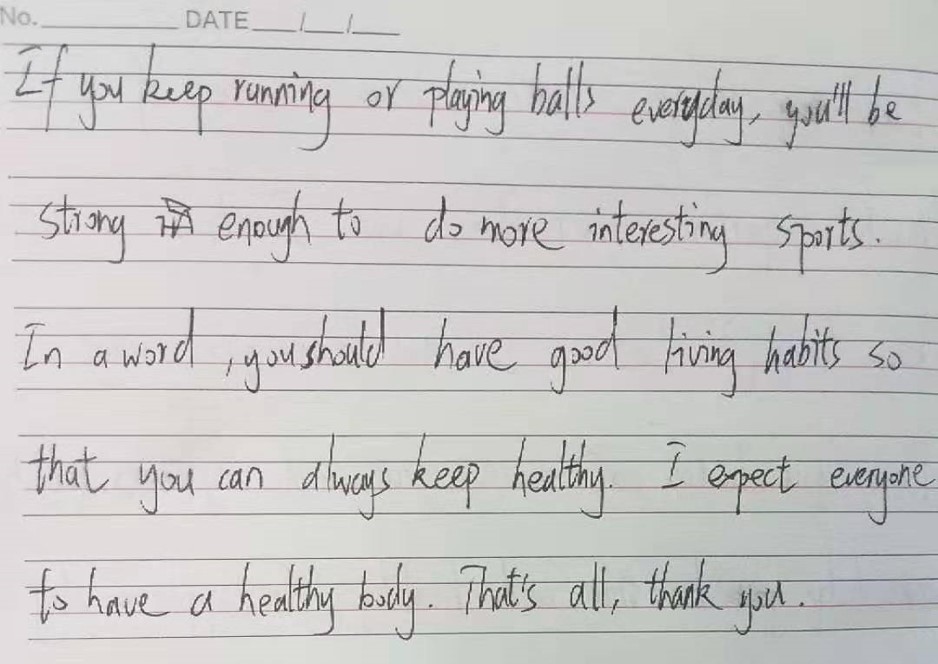 No. DATE / /
If you keep running or playing balls everyday, you'll be
strong enough to do more interesting sports.
In a word, you should have good living habits so
that you can always keep healthy. I expect everyone
to have a healthy body. That's all, thank you.